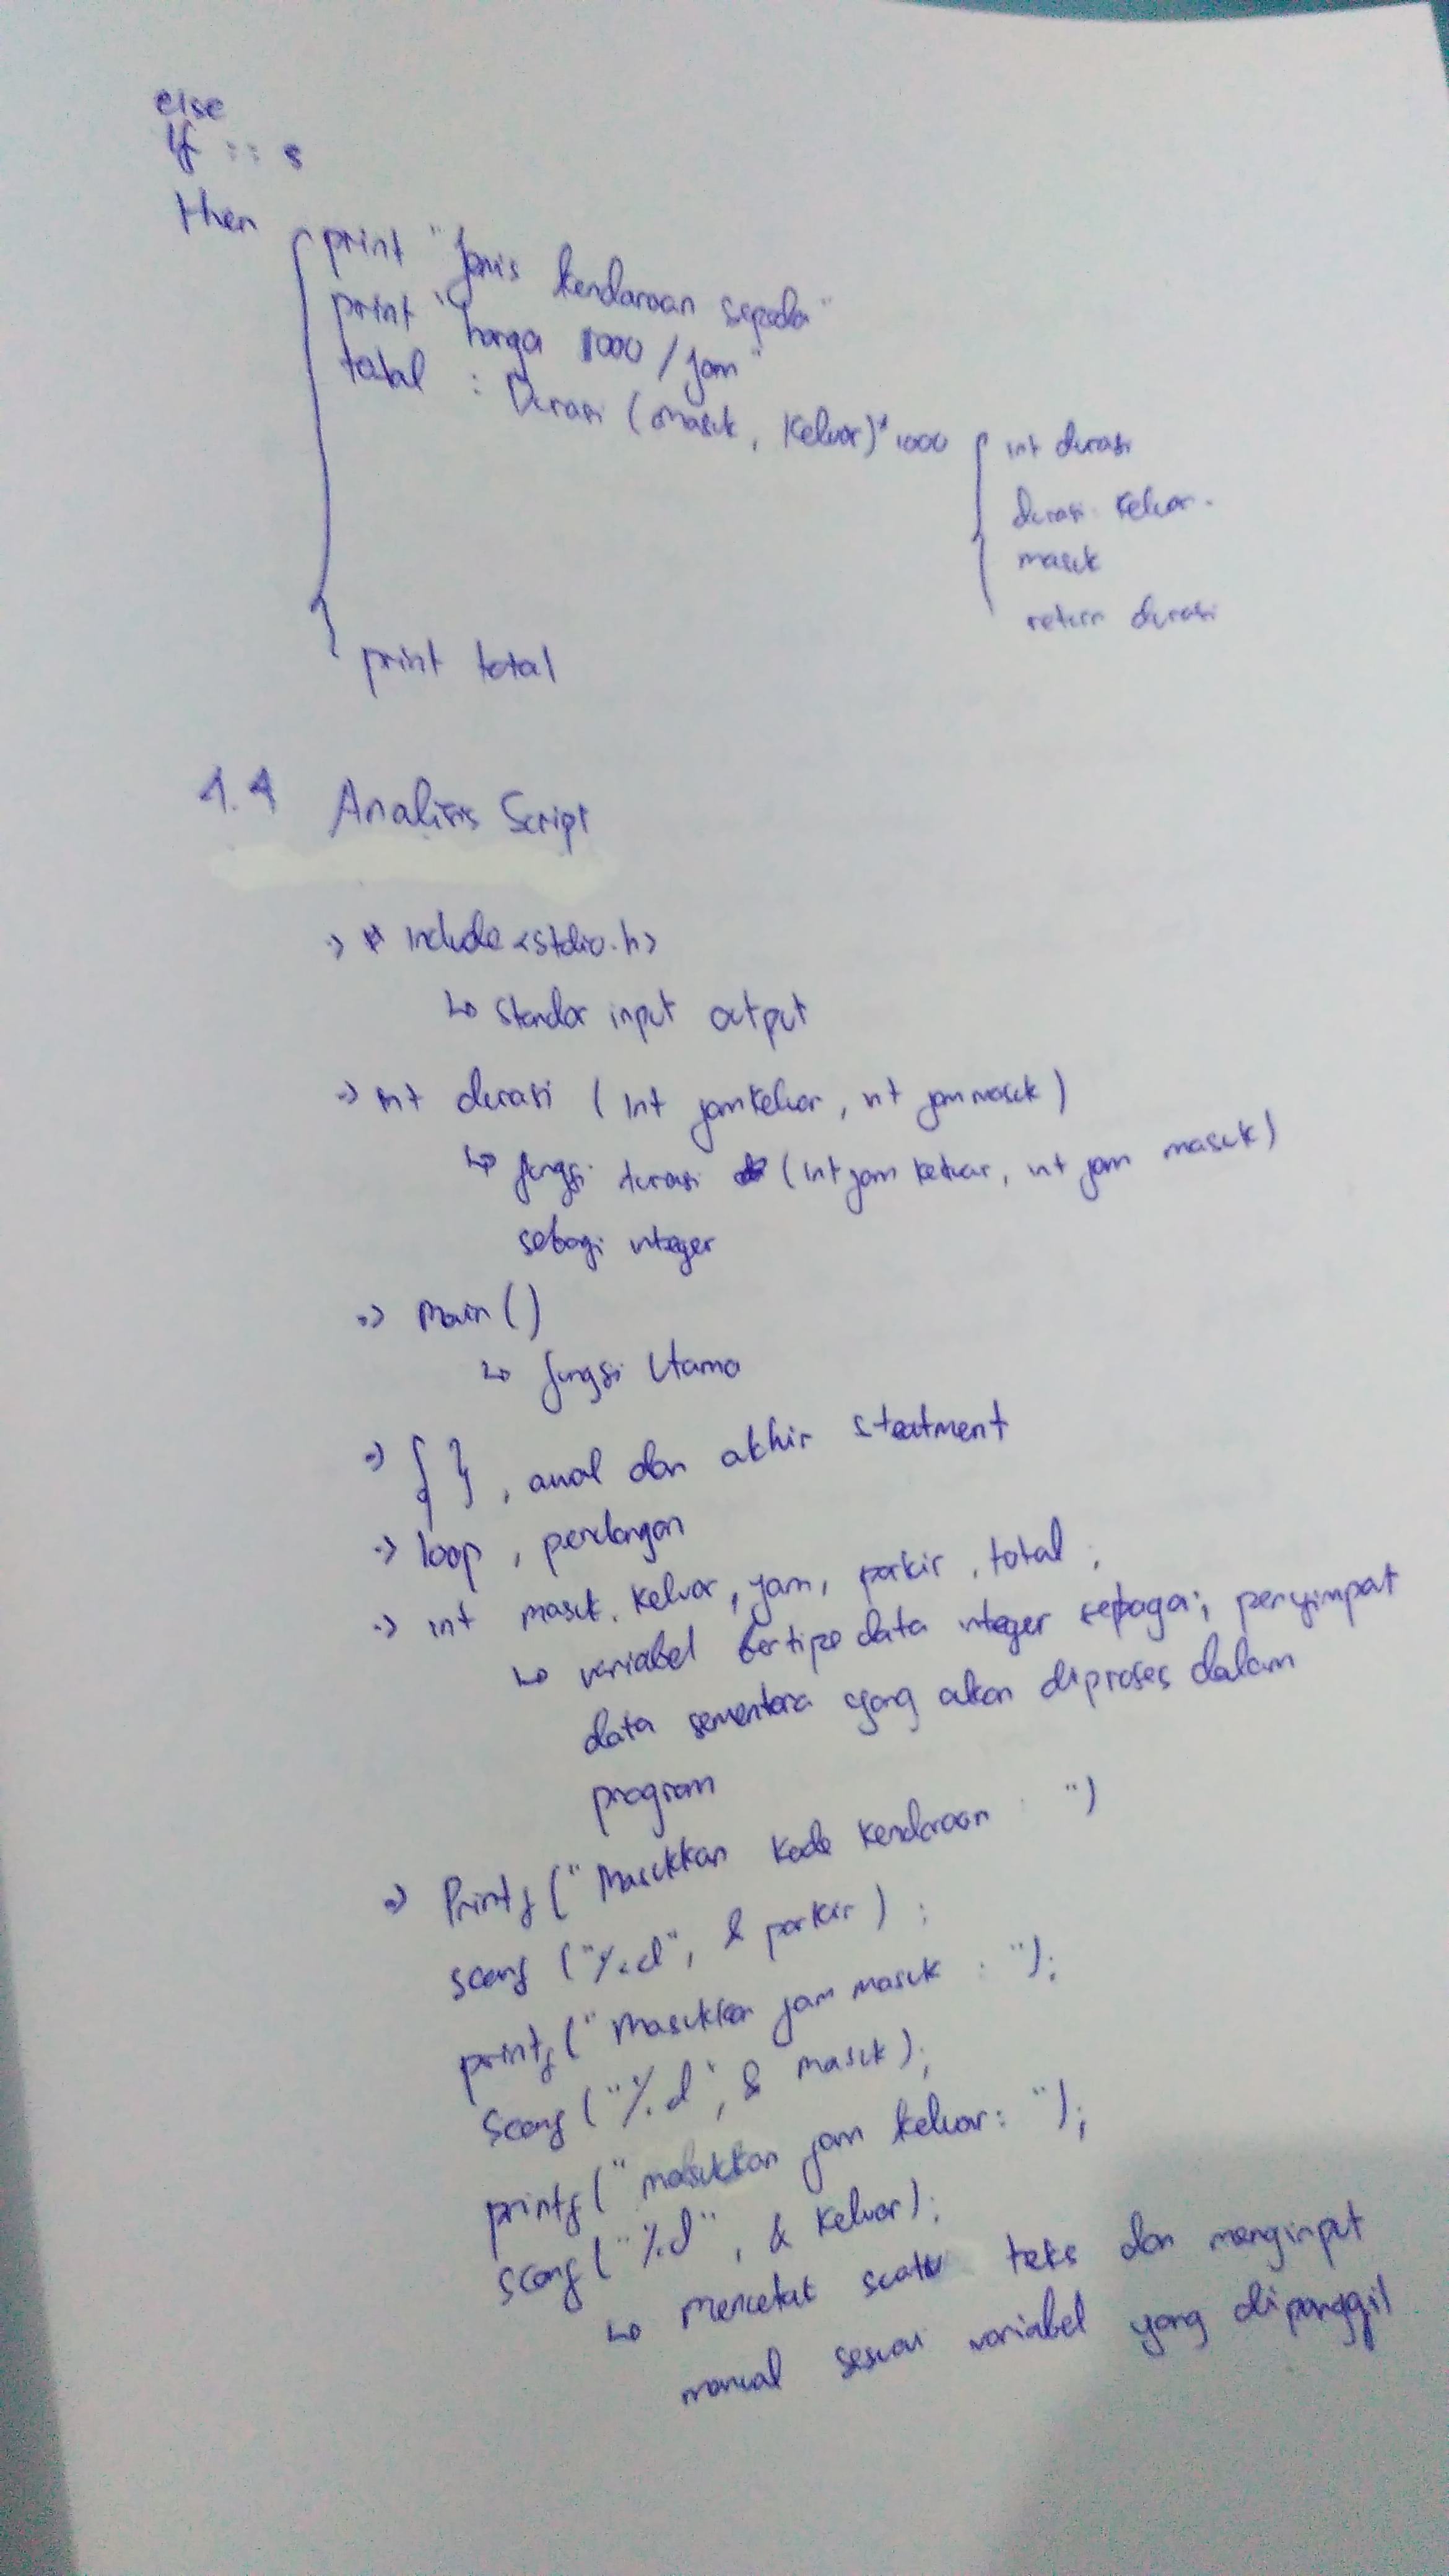 else
If == s
then { print "Jenis kendaraan sepeda"
print "harga 1000 / jam"
total : Durasi (masuk, keluar)* 1000 { int durasi
durasi = keluar -
masuk
return durasi
print total
1.4 Analisis Script
=> # include <stdio.h>
↳ standar input output
=> int durasi ( int jamkeluar, int jammasuk )
↳ fungsi durasi (int jam keluar, int jam masuk)
sebagi integer
=> main ()
↳ fungsi utama
=> { } , awal dan akhir steatment
=> loop , perulangan
=> int masuk, keluar, jam, parkir, total ;
↳ variabel bertipe data integer sebagai penyimpat
data sementara yang akan diproses dalam
program
=> Printf ("Masukkan kode kendaraan : ")
scanf ("%d", & parkir ) ;
printf (" Masukkan jam masuk : ");
scanf ("%d", & masuk);
printf (" masukkan jam keluar : ");
scanf ("%d", & keluar);
↳ mencetak suatu teks dan menginput
manual sesuai variabel yang dipanggil